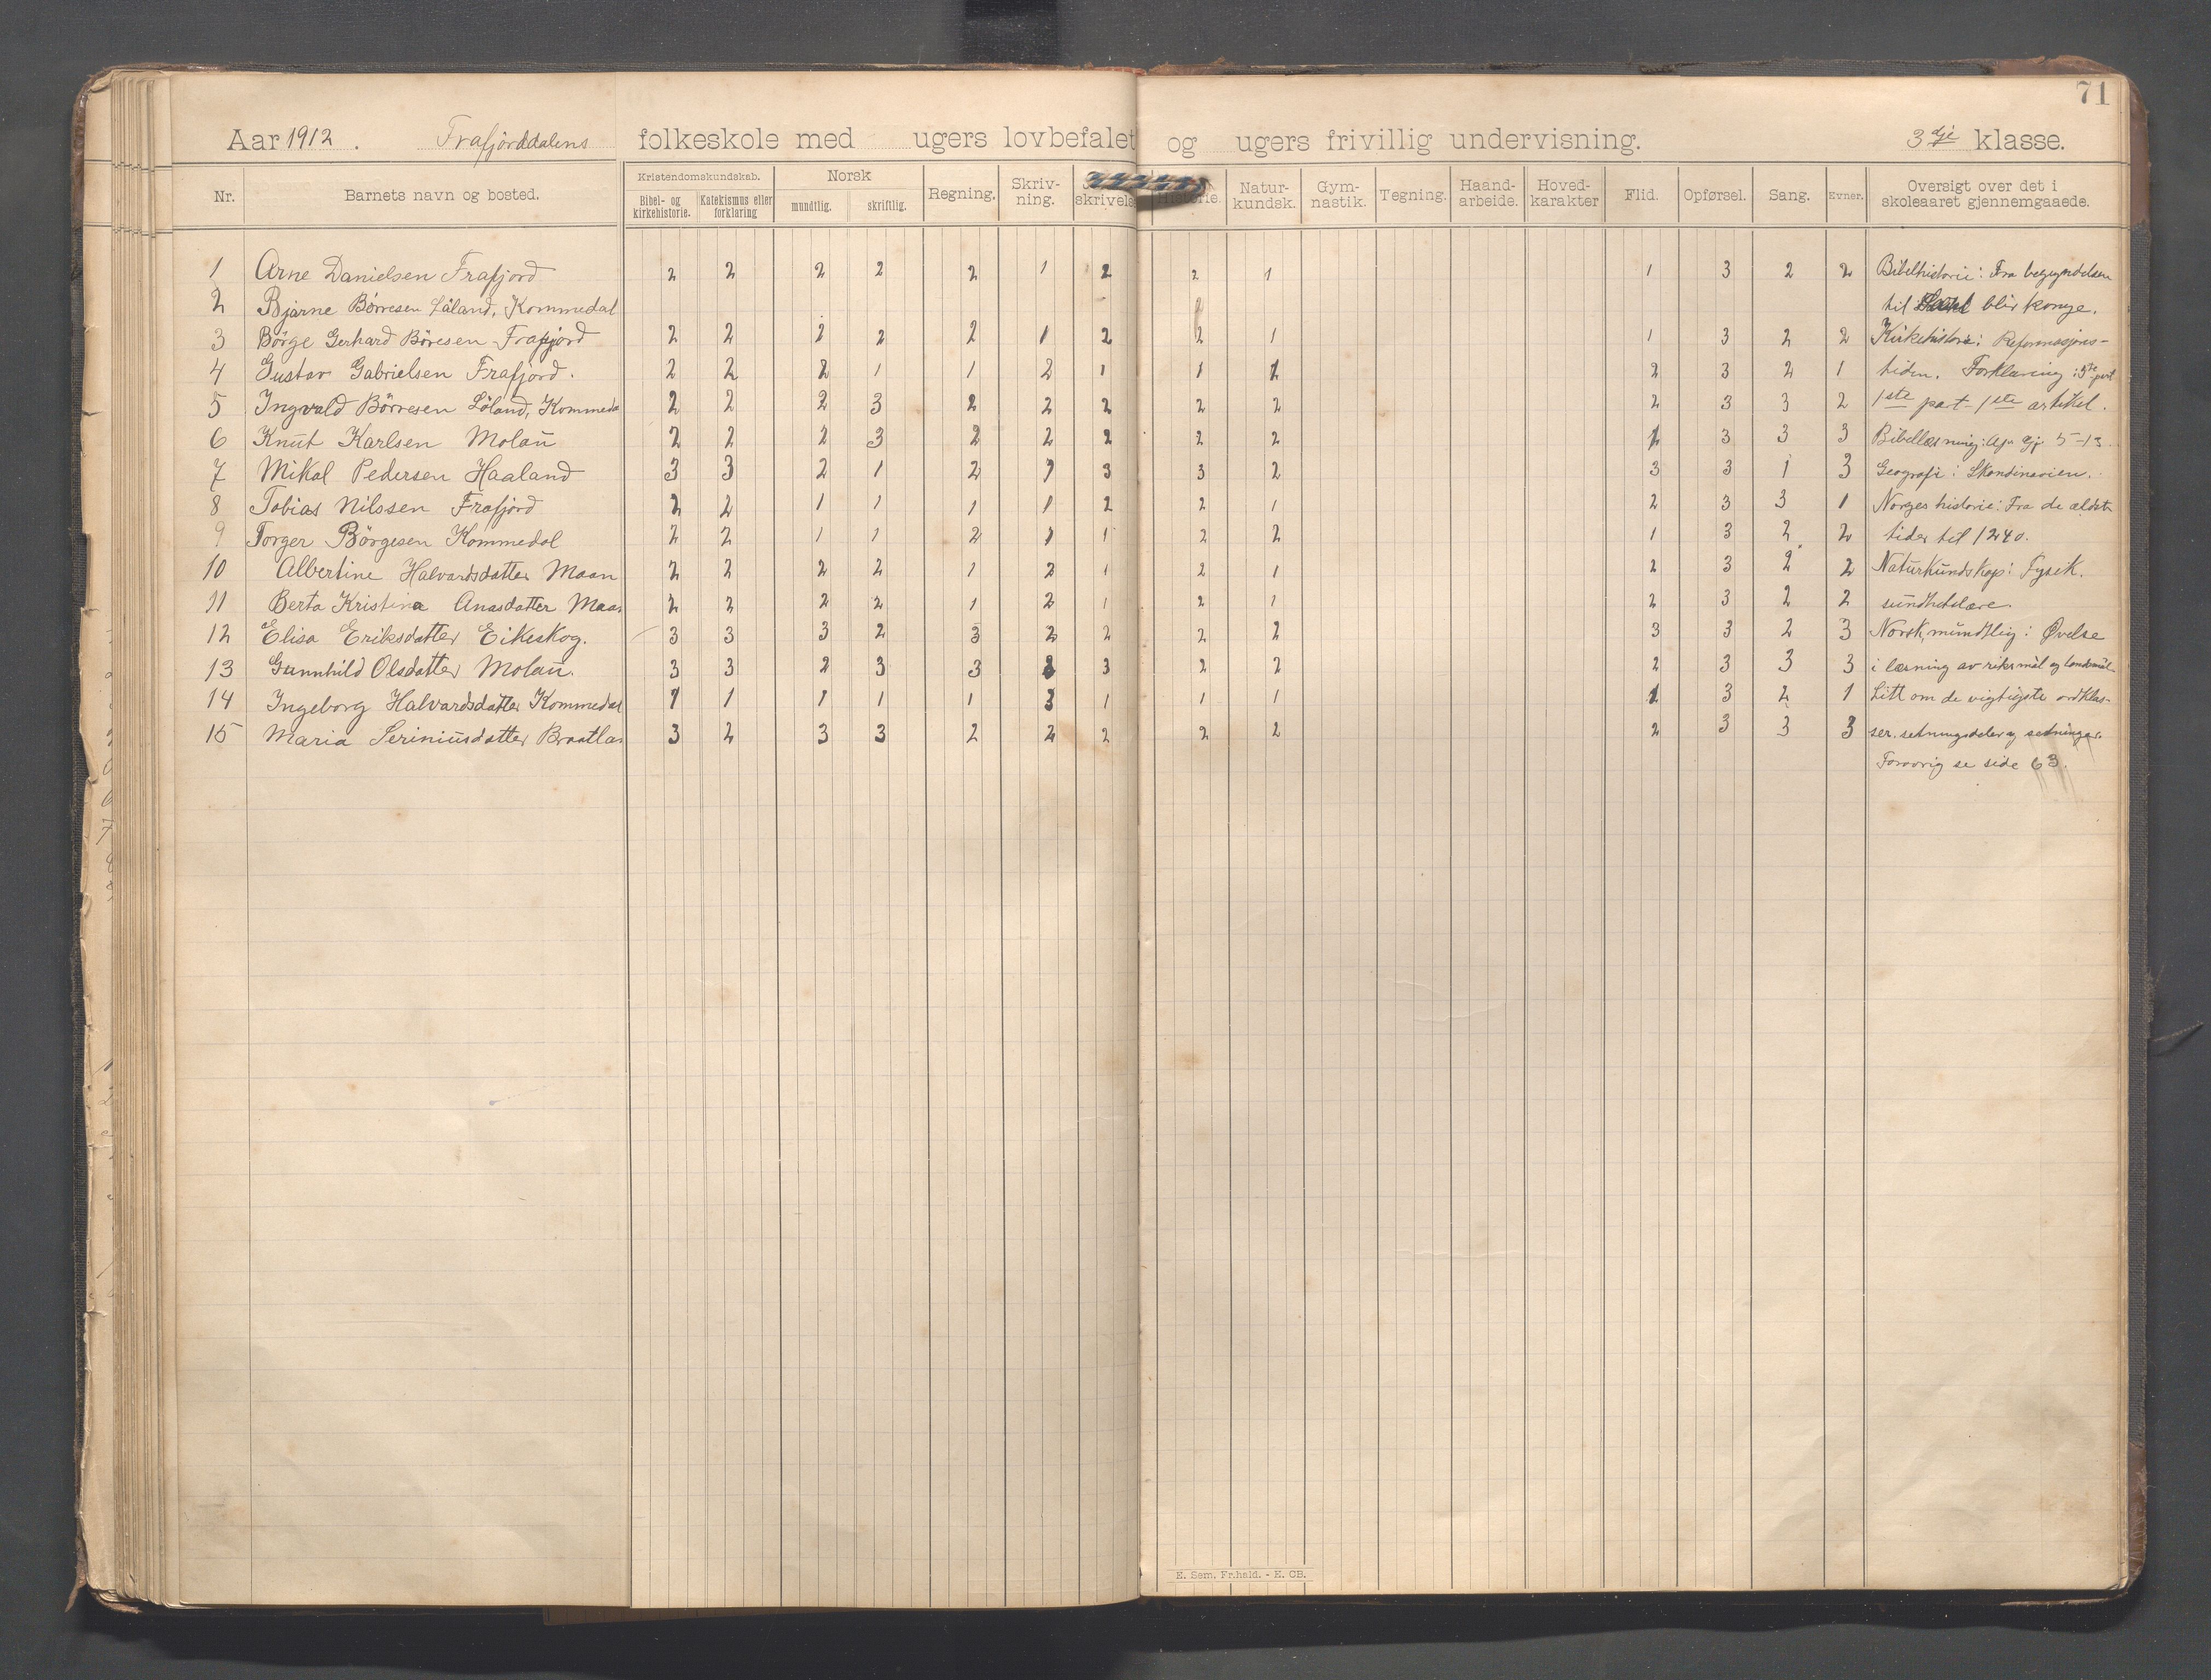 71
Aar 1912. Frafjorddalens folkeskole med ugers lovbefalet og ugers frivillig undervisning. 3dje klasse.
Nr. Barnets navn og bosted. Kristendomskundskab. Bibel- og kirkehistorie. Katekismus eller forklaring Norsk mundtlig. skriftlig. Regning. Skriv-ning. skrivelse Historie. Natur-kundsk. Gym-nastik. Tegning. Haand-arbeide. Hoved-karakter Flid. Opførsel. Sang. Evner. Oversigt over det i skoleaaret gjennemgaaede.
1 Arne Danielsen Frafjord 2 2 2 2 2 1 2 2 1 1 3 2 2 Bibelhistorie: Fra begyndelsen
2 Bjarne Börresen Låland, Kommedal til blir konge.
3 Börge Gerhard Böresen Frafjord 2 2 2 2 2 1 2 2 1 1 3 2 2 Kirkehistorie: Reformasjons-
4 Gustav Gabrielsen Frafjord. 2 2 2 1 1 2 1 1 2 2 3 2 1 tiden. Forklaring: 5te part
5 Ingvald Börresen Löland, Kommeda 2 2 2 3 2 2 2 2 2 2 3 3 2 1ste part - 1ste artikel.
6 Knut Karlsen Molaü 2 2 2 3 2 2 2 2 2 2 3 3 3 Bibellæsning: Ap. Gj. 5-13.
7 Mikal Pedersen Haaland 3 3 2 1 2 1 3 3 2 3 3 1 3 Geografi: Skandinavien.
8 Tobias Nilssen Frafjord 2 2 1 1 1 1 2 2 1 2 3 3 1 Norges historie: Fra de ældste
9 Torger Börgesen Kommedal 2 2 1 1 2 1 1 2 2 1 3 2 2 tider til 1240.
10 Albertine Halvardsdatter Maan 2 2 2 2 1 2 1 2 1 2 3 2 2 Naturkundskap: Fysik.
11 Berta Kristina Anasdatter Maa 2 2 2 2 1 2 1 2 1 2 3 2 2 sundhetslære.
12 Elisa Eriksdatter Eikeskog. 3 3 3 2 3 2 2 2 2 3 3 2 3 Norsk, mündtlig: Øvelse
13 Gunnhild Olsdatter Molaü. 3 3 2 3 3 2 3 2 2 2 3 3 3 i læsning av riksmål og landsmål
14 Ingeborg Halvardsdatter Kommedal 1 1 1 1 1 3 1 1 1 1 3 2 1 Litt om de vigtigste ordklas-
15 Maria Seriniusdatter Braatla 3 2 3 3 2 2 2 2 2 2 3 3 3 ser. setningsdeler og sætninger.
Forövrig se side 63.
E. Sem, Fr.hald. - E. CB.